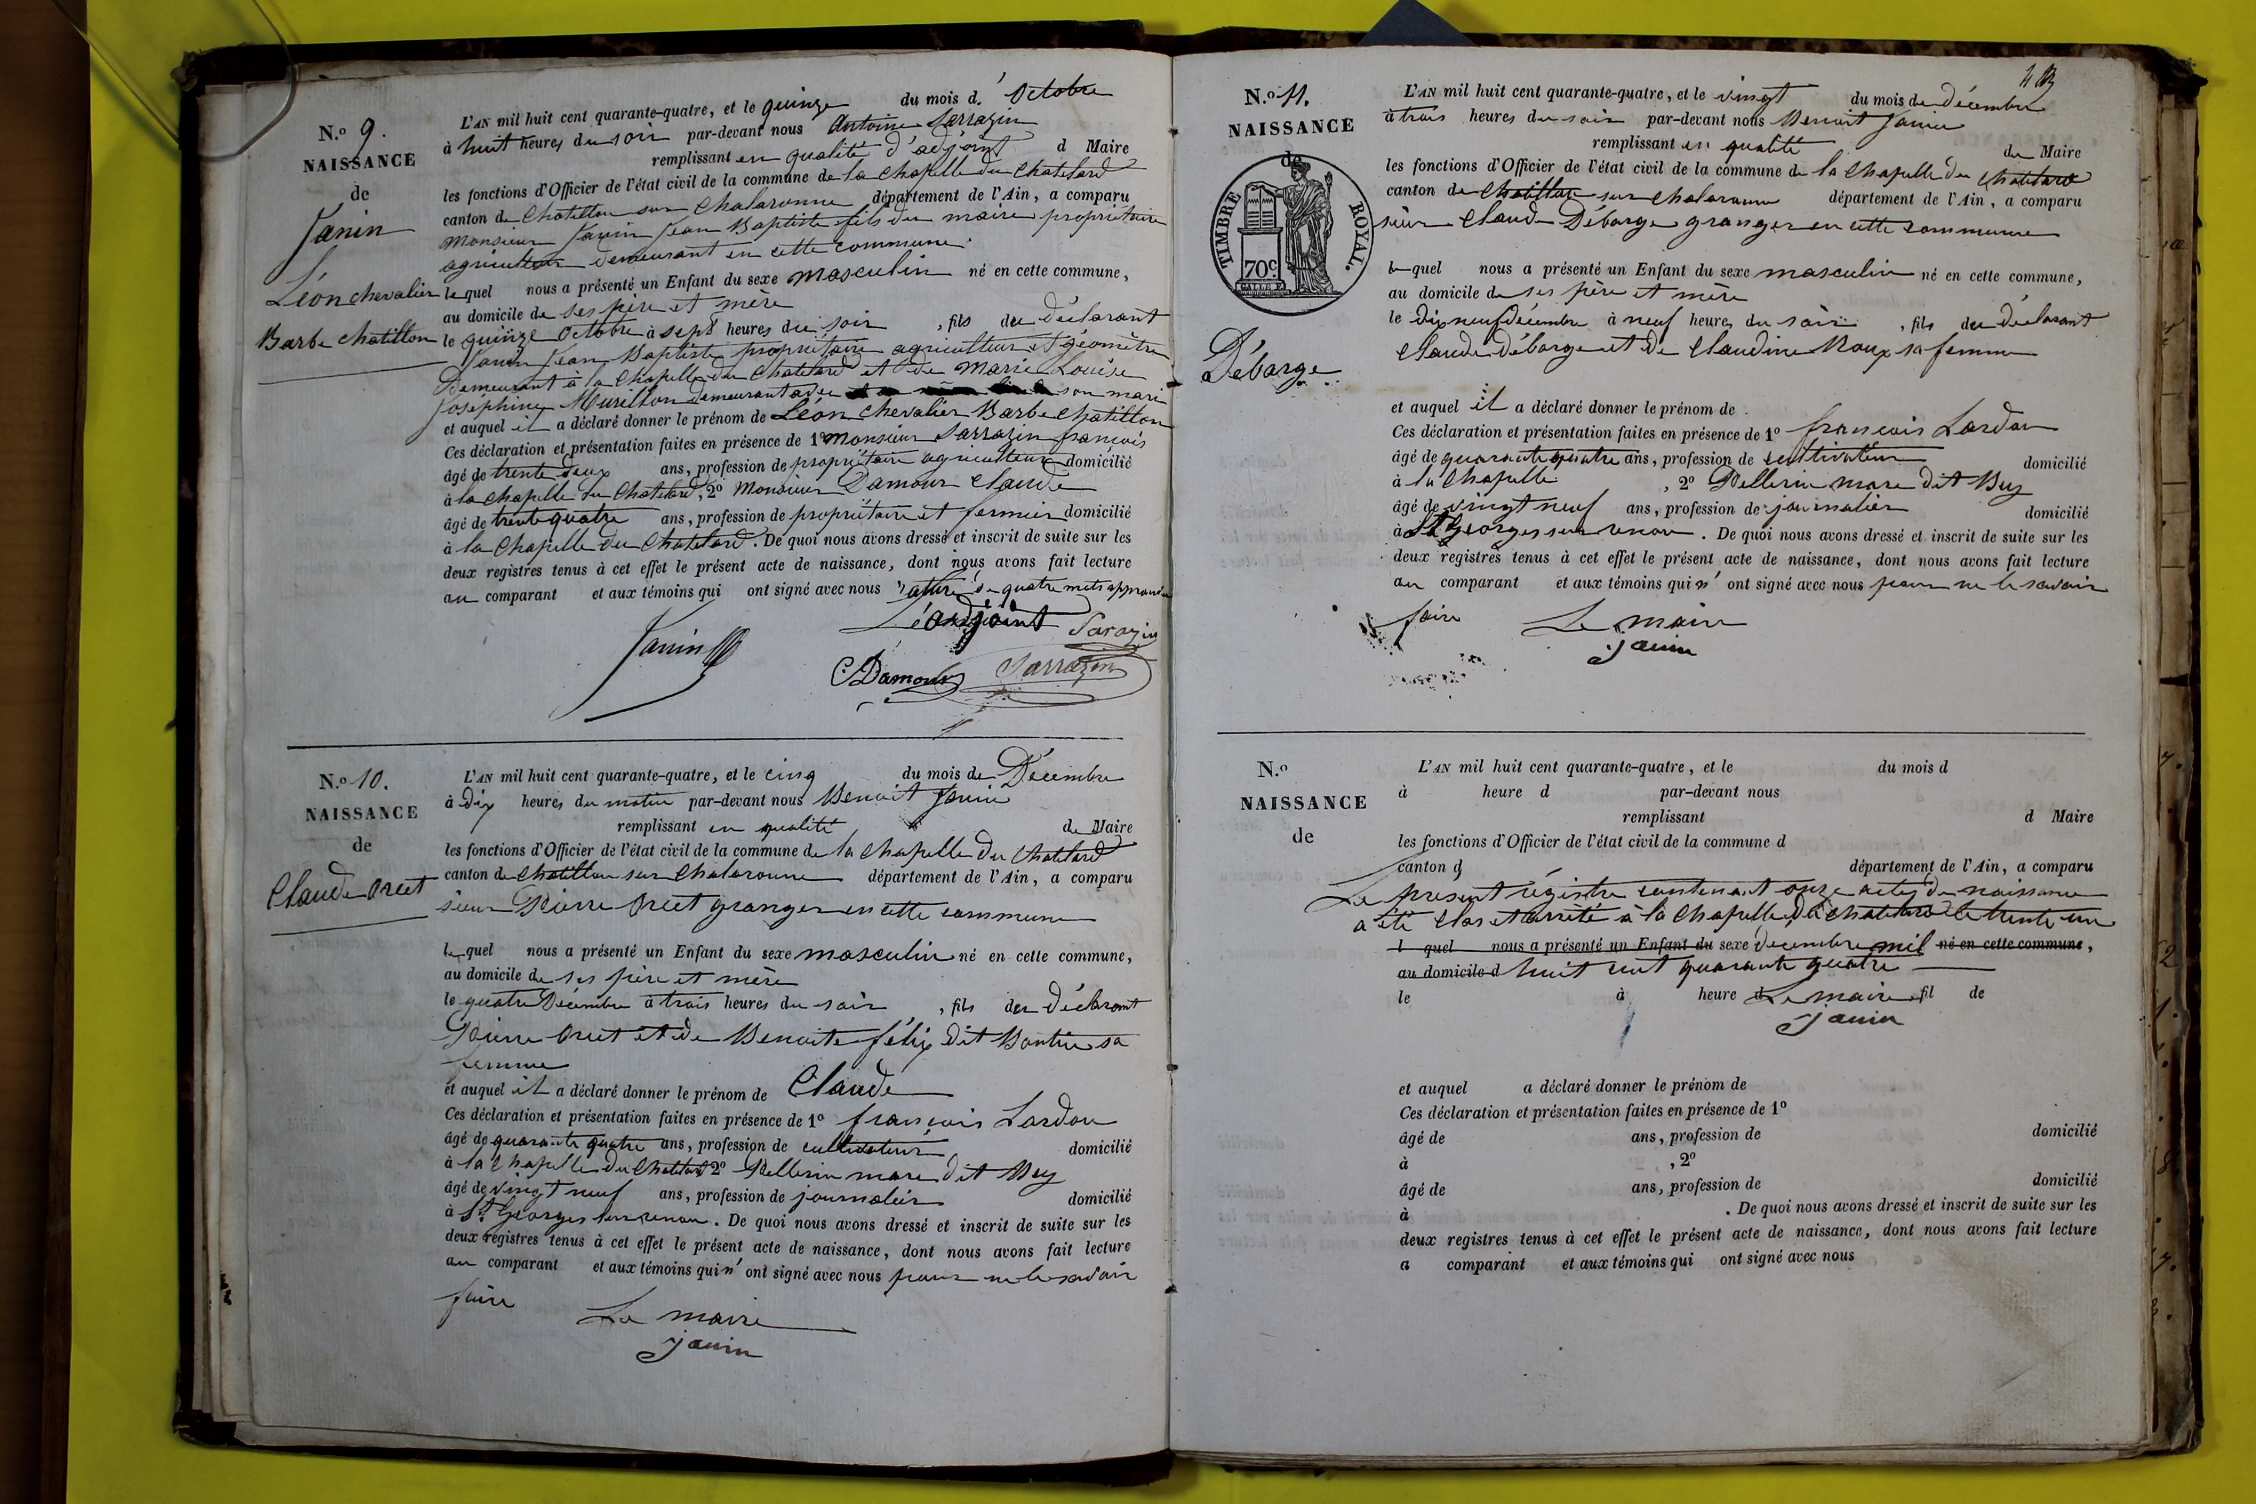 N.o 9.
NAISSANCE
de
Janin
Léon chevalier
Barbe chatillon
L'AN mil huit cent quarante-quatre, et le quinze du mois d' Octobre
à huit heures du soir par-devant nous Antoine Sarrazin
remplissant en qualité d'adjoint d Maire
les fonctions d'Officier de l'état civil de la commune de la Chapelle du Chatelard
canton de Chatillon sur Chalaronne département de l'Ain, a comparu
Monsieur Janin Jean Baptiste fils du maire propriétaire
agriculteur demeurant en cette commune
lequel nous a présenté un Enfant du sexe masculin né en cette commune,
au domicile de ses père et mère
le quinze Octobre à sept heures du soir , fils du déclarant
Janin Jean Baptiste propriétaire agriculteur et géomètre
Demeurant à la Chapelle du Chatelard et de Marie Louise
Joséphine Murillon demeurant avec son mari
et auquel il a déclaré donner le prénom de Léon chevalier Barbe chatillon
Ces déclaration et présentation faites en présence de 1o Monsieur Sarrazin françois
âgé de trente deux ans, profession de propriétaire agriculteur domicilié
à la chapelle du Chatelard, 2o Monsieur Damour Claude
âgé de trente quatre ans, profession de propriétaire et fermier domicilié
à la Chapelle du Chatelard. De quoi nous avons dressé et inscrit de suite sur les
deux registres tenus à cet effet le présent acte de naissance, dont nous avons fait lecture
au comparant et aux témoins qui ont signé avec nous quatre mots
L'adjoint Sarazin
Janin
CDamour Sarrazin
N.o 10.
NAISSANCE
de
Claude Orcet
L'AN mil huit cent quarante-quatre, et le cinq du mois de Décembre
à dix heures du matin par-devant nous Benoit Janin
remplissant en qualité de Maire
les fonctions d'Officier de l'état civil de la commune de la Chapelle du Chatelard
canton de Chatillon sur Chalaronne département de l'Ain, a comparu
sieur Pierre Orcet granger en cette commune
lequel nous a présenté un Enfant du sexe masculin né en cette commune,
au domicile de ses père et mère
le quatre Décembre à trois heures du soir , fils du déclarant
Pierre Orcet et de Benoite félix dit Bontin sa
femme
et auquel il a déclaré donner le prénom de Claude
Ces déclaration et présentation faites en présence de 1o françois Lardon
âgé de quarante quatre ans, profession de cultivateur domicilié
à la Chapelle du Chatelard 2o Pellerin marc dit Buy
âgé de vingt neuf ans, profession de journalier domicilié
à St Georges sur renon. De quoi nous avons dressé et inscrit de suite sur les
deux registres tenus à cet effet le présent acte de naissance, dont nous avons fait lecture
au comparant et aux témoins qui n' ont signé avec nous pour ne le savoir
faire
Le maire
Janin
4
N.o 11.
NAISSANCE
de
TIMBRE ROYAL.
70c.
Débarge
L'AN mil huit cent quarante-quatre, et le vingt du mois de décembre
à trois heures du soir par-devant nous Benoit Janin
remplissant en qualité de Maire
les fonctions d'Officier de l'état civil de la commune de la Chapelle du Chatelard
canton de Chatillon sur Chalaronne département de l'Ain, a comparu
sieur Claude Débarge granger en cette commune
lequel nous a présenté un Enfant du sexe masculin né en cette commune,
au domicile de ses père et mère
le dix neuf décembre à neuf heures du soir , fils du déclarant
Claude Débarge et de Claudine Roux sa femme
et auquel il a déclaré donner le prénom de
Ces déclaration et présentation faites en présence de 1o françois Lardon
âgé de quarante quatre ans, profession de cultivateur domicilié
à la Chapelle , 2o Pellerin marc dit Buy
âgé de vingt neuf ans, profession de journalier domicilié
à St Georges sur renon. De quoi nous avons dressé et inscrit de suite sur les
deux registres tenus à cet effet le présent acte de naissance, dont nous avons fait lecture
au comparant et aux témoins qui n' ont signé avec nous pour ne le savoir
faire
Le maire
Janin
N.o
NAISSANCE
de
L'AN mil huit cent quarante-quatre, et le du mois d
à heure d par-devant nous
remplissant d Maire
les fonctions d'Officier de l'état civil de la commune d
canton d département de l'Ain, a comparu
Le présent régistre contenant onze actes de naissance
a été clos et arrêté à la Chapelle du Chatelard le trente un
l quel nous a présenté un Enfant du sexe décembre mil né en cette commune,
au domicile d huit cent quarante quatre
le à heure d Le maire fil de
Janin
et auquel a déclaré donner le prénom de
Ces déclaration et présentation faites en présence de 1o
âgé de ans, profession de domicilié
à , 2o
âgé de ans, profession de domicilié
à . De quoi nous avons dressé et inscrit de suite sur les
deux registres tenus à cet effet le présent acte de naissance, dont nous avons fait lecture
a comparant et aux témoins qui ont signé avec nous